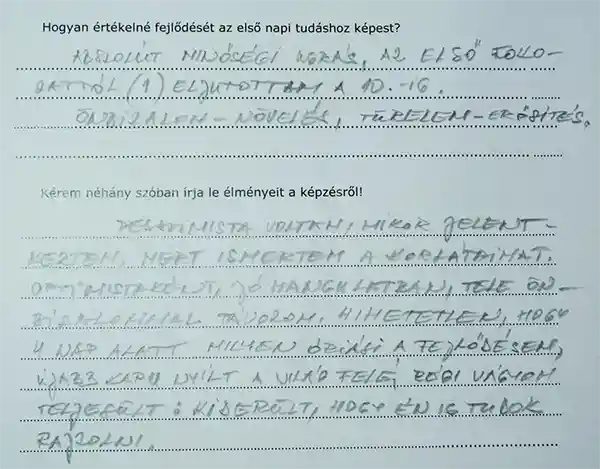 Hogyan értékelné fejlődését az első napi tudáshoz képest?
ABSZOLÚT MINŐSÉGI UGRÁS, AZ ELSŐ FOKO-
ZATTÓL (1) ELJUTOTTAM A 10.-IG.
ÖNBIZALOM-NÖVELÉS, TÜRELEM-ERŐSÍTÉS.
Kérem néhány szóban írja le élményeit a képzésről!
PESSZIMISTA VOLTAM, MIKOR JELENT-
KEZTEM, MERT ISMERTEM A KORLÁTAIMAT.
OPTIMISTAKÉNT, JÓ HANGULATBAN, TELE ÖN-
BIZALOMMAL TÁVOZOM. HIHETETLEN, HOGY
4 NAP ALATT MILYEN ÓRIÁSI A FEJLŐDÉSEM,
ÚJABB KAPU NYÍLT A VILÁG FELÉ, RÉGI VÁGYAM
TELJESÜLT: KIDERÜLT, HOGY ÉN IS TUDOK
RAJZOLNI.